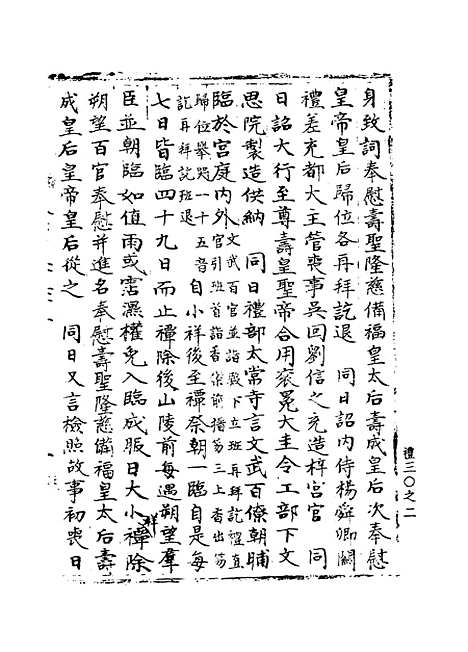 身致詞奉慰壽聖隆慈備福皇太后壽成皇后次奉慰
皇帝皇后歸位各再拜訖退 同日詔内侍楊舜卿關
禮差充都大主管喪事吳回劉信之充造梓宮官 同
日詔大行至尊壽皇聖帝合用衮冕大圭令工部下文
思院製造供納 同日禮部太常寺言文武百僚朝晡
臨於宮庭内外文武百官並詣殿下立班再拜訖禮直官引班首詣香案前搢笏三上香出笏
歸位舉哭一十五音訖再拜訖班退自小祥後至禫祭朝一臨自是每
七日皆臨四十九日而止禫除後山陵前每遇朔望羣
臣並朝臨如值雨或霑濕權免入臨成服日大小祥禫除
朔望百官奉慰并進名奉慰壽聖隆慈備福皇太后壽
成皇后皇帝皇后從之 同日又言檢照故事初喪日
禮三〇之二